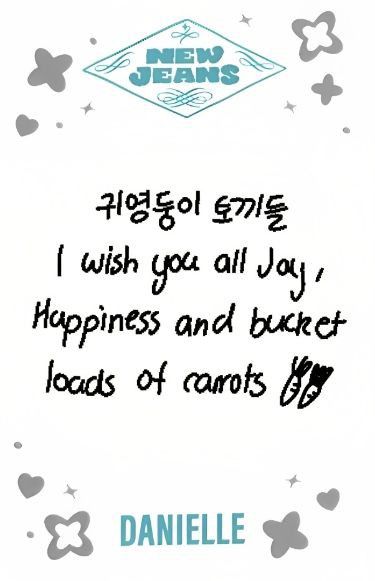 NEW
JEANS
귀영둥이 토끼들
I wish you all Joy,
Happiness and bucket
loads of carrots
DANIELLE